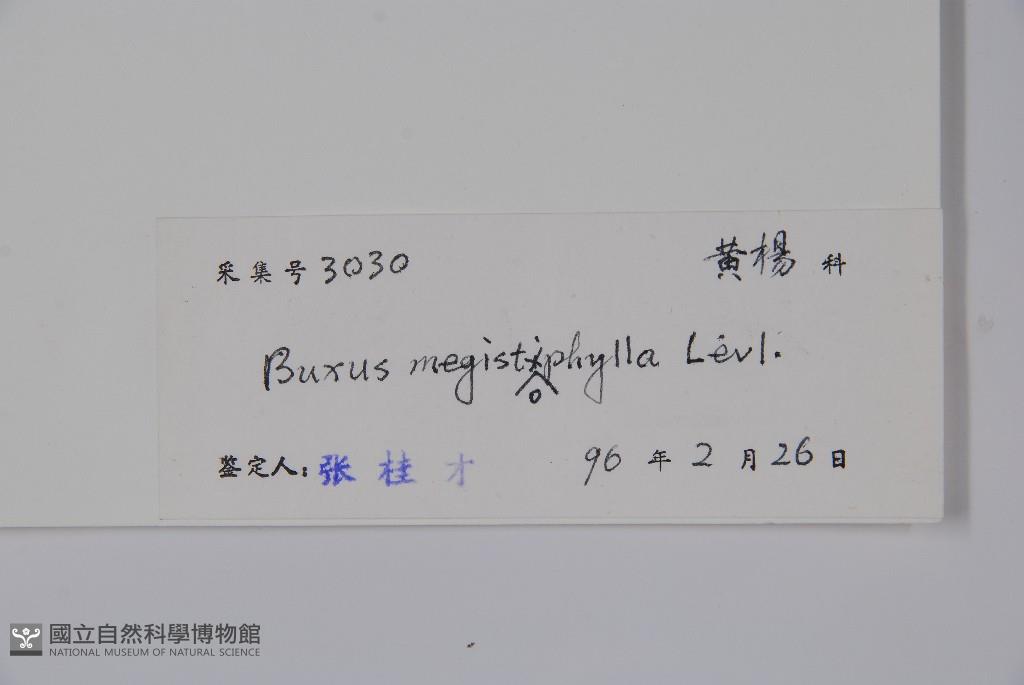 采集号 3030 黄楊 科
Buxus megistophylla Lévl.
鉴定人: 张桂才 96 年 2 月 26 日
國立自然科學博物館
NATIONAL MUSEUM OF NATURAL SCIENCE